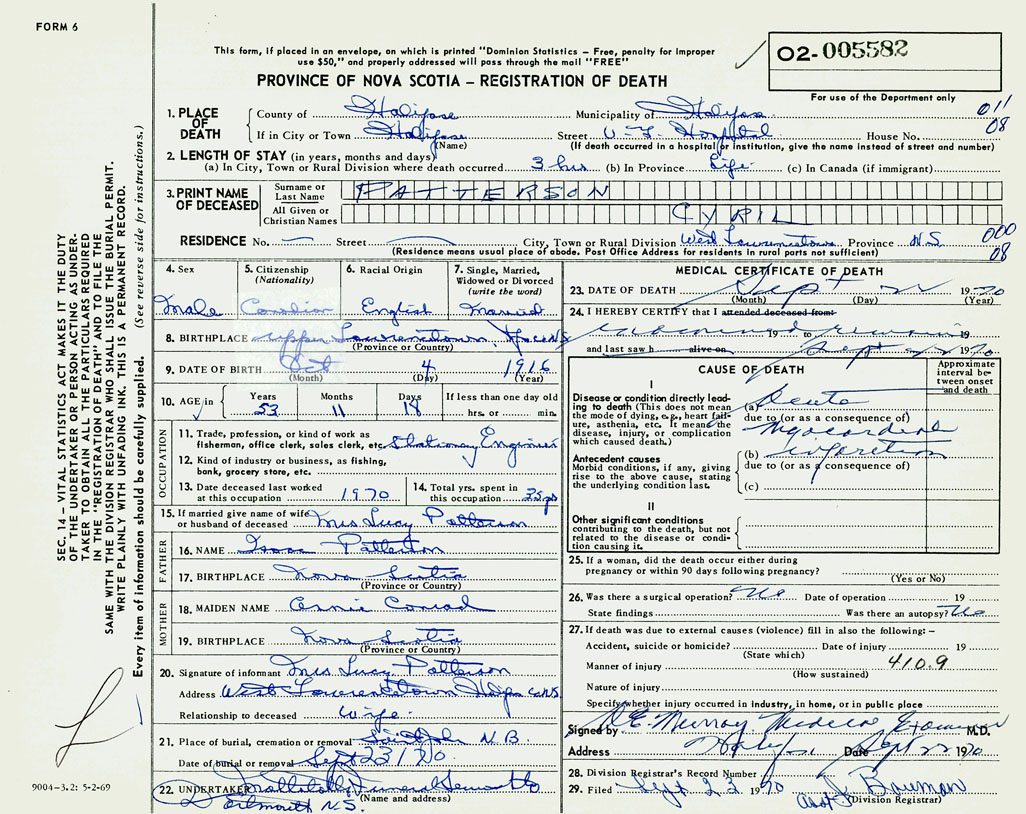 FORM 6
This form, if placed in an envelope, on which is printed "Dominion Statistics – Free, penalty for improper
use $50," and properly addressed will pass through the mail "FREE"
PROVINCE OF NOVA SCOTIA – REGISTRATION OF DEATH
O2-005582
For use of the Department only
1. PLACE OF DEATH
County of Halifax Municipality of Halifax 011
If in City or Town Halifax Street V. G. Hospital House No. 08
(Name) (If death occurred in a hospital or institution, give the name instead of street and number)
2. LENGTH OF STAY (in years, months and days)
(a) In City, Town or Rural Division where death occurred 3 hrs (b) In Province Life (c) In Canada (if immigrant)
3. PRINT NAME OF DECEASED
Surname or Last Name PATTERSON
All Given or Christian Names CYRIL
RESIDENCE No. — Street — City, Town or Rural Division West Lawrencetown Province N.S. 000
(Residence means usual place of abode. Post Office Address for residents in rural parts not sufficient) 08
4. Sex
Male
5. Citizenship (Nationality)
Canadian
6. Racial Origin
English
7. Single, Married, Widowed or Divorced (write the word)
Married
8. BIRTHPLACE Upper Lawrencetown, Hfx Co NS
(Province or Country)
9. DATE OF BIRTH Oct 4 1916
(Month) (Day) (Year)
10. AGE in Years 53 Months 11 Days 18 If less than one day old
hrs. or min.
OCCUPATION
11. Trade, profession, or kind of work as
fisherman, office clerk, sales clerk, etc. Stationary Engineer
12. Kind of industry or business, as fishing,
bank, grocery store, etc.
13. Date deceased last worked at this occupation 1970
14. Total yrs. spent in this occupation 35 yrs
15. If married give name of wife or husband of deceased Mrs Lucy Patterson
FATHER
16. NAME Isaac Patterson
17. BIRTHPLACE Nova Scotia
(Province or Country)
MOTHER
18. MAIDEN NAME Conrad
19. BIRTHPLACE Nova Scotia
(Province or Country)
20. Signature of informant Mrs Lucy Patterson
Address West Lawrencetown Halifax Co NS
Relationship to deceased Wife
21. Place of burial, cremation or removal Saint John N.B.
Date of burial or removal Sept 23/70
22. UNDERTAKER Funeral
(Name and address)
Dartmouth N.S.
MEDICAL CERTIFICATE OF DEATH
23. DATE OF DEATH Sept 22 1970
(Month) (Day) (Year)
24. I HEREBY CERTIFY that I attended deceased from
examined remains 19 to 19
and last saw h alive on Sept 22 1970
CAUSE OF DEATH
Approximate interval between onset and death
I
Disease or condition directly leading to death (This does not mean the mode of dying, e.g., heart failure, asthenia, etc. It means the disease, injury, or complication which caused death.)
(a) Acute
due to (or as a consequence of)
Myocardial
Antecedent causes
Morbid conditions, if any, giving rise to the above cause, stating the underlying condition last.
(b) infarction
due to (or as a consequence of)
(c)
II
Other significant conditions
contributing to the death, but not related to the disease or condition causing it.
25. If a woman, did the death occur either during
pregnancy or within 90 days following pregnancy?
(Yes or No)
26. Was there a surgical operation? No Date of operation 19
State findings Was there an autopsy? No
27. If death was due to external causes (violence) fill in also the following: –
Accident, suicide or homicide? Date of injury 19
(State which)
Manner of injury 410.9
(How sustained)
Nature of injury
Specify whether injury occurred in industry, in home, or in public place
Signed by D.E. Murray Medical Examiner M.D.
Address Halifax Date Sept 22 1970
28. Division Registrar's Record Number
29. Filed Sept 23 1970 Asst J. Bauman
(Division Registrar)
SEC. 14 – VITAL STATISTICS ACT MAKES IT THE DUTY
OF THE UNDERTAKER OR PERSON ACTING AS UNDER-
TAKER TO OBTAIN ALL THE PARTICULARS REQUIRED
IN THE "REGISTRATION OF DEATH" AND TO FILE THE
SAME WITH THE DIVISION REGISTRAR WHO SHALL ISSUE THE BURIAL PERMIT.
WRITE PLAINLY WITH UNFADING INK. THIS IS A PERMANENT RECORD.
Every item of information should be carefully supplied. (See reverse side for instructions.)
9004-3.2: 5-2-69